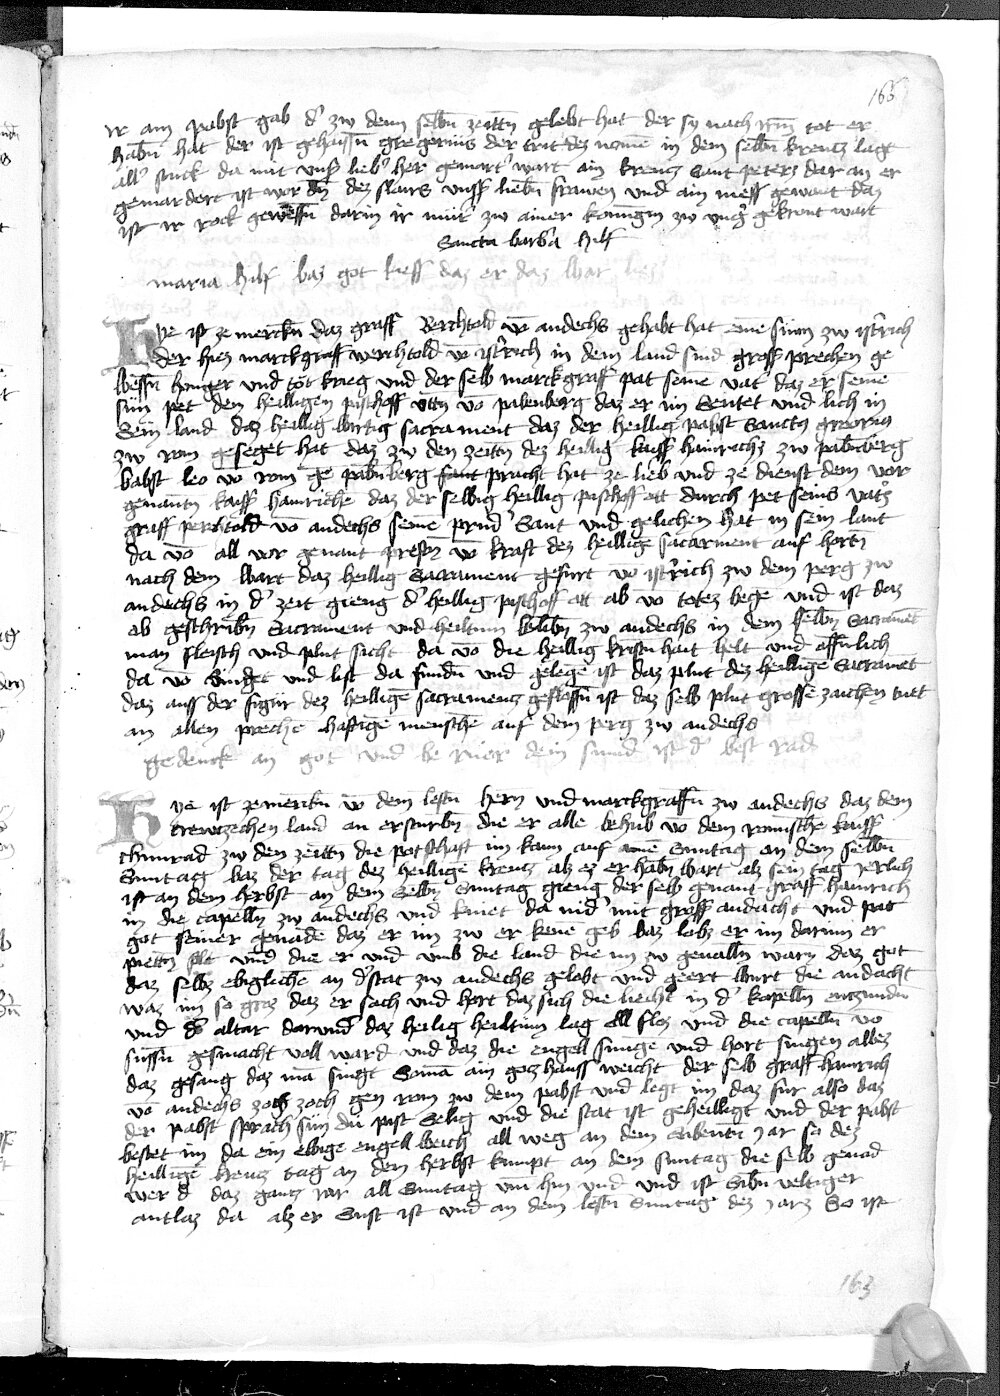 165
ir ain pabst gab d' zw denn selbn̄ zeittn̄ gelebt hat der sy nach im tot er
habn̄ hat der ist gehaissn̄ gregorius der trit dez nomē in dem selbn̄ kreucz lagt
all' stuck da mit uns' lieb' her gemart' wart ain kreucz Sant peters dar an er
gemardert ist wor dn̄ dez slairs unss' liebn̄ frawen und ain mess gewant daz
ist ir rock gewessn̄ darin ir mut' zw ainer konngin zw ung' gekront wart
Sancta barb'a hilf
maria hilf baz got hiess daz er daz war lies
Hye ist ze merckn̄ daz graff Berchtold vō andechs gehabt hat eine sunn zw istrich
der hiez marckgraff werchtold vō istrich in dem land sind gross prechen ge
wessn̄ hunger und tot krieg und der selb marckgraff pat seine vat' daz er seine
sun pet den heilligen pischoff ottn̄ vō pabenberg daz er im Sentet und lich in
Sein land daz heillig wirtig sacrament daz der heillig pabst Sanctus gregorius
zw rom gesegēt hat daz zw den zeittn̄ dez heillig kaiss' hainrichs zw pabn̄berg
babst leo vō rom ge pabn̄berg pracht hat ze lieb und ze dienst dem vor
genantn̄ kaiss' hainriche daz der selbig heillig pischoff ott durch pet seins vat's
graff perchtold vō andechs seine prud' Sant und gelichen hat in sein lant
da vō all vor genant prestn̄ vō kraft dez heillige sacarment auf hortn̄
nach dem wart daz heillig Sacrament gefurt vō istrich zw dem perg zw
andechs in d' zeit gieng d' heillig pischoff ott ab vō totez wege und ist daz
ob geschribn̄ Sacrament und heiltum blibn̄ zw andechs in dem selbn̄ Sacramēt
man fleisch und plut sicht da vō die heillig kristn̄hait helt und offn̄lich
da vō Singet und list da fundn̄ und gelege ist daz plut dez heillige Sacramēt
daz auss der figur dez heillige sacramentz geflossn̄ ist daz selb plut grosse zaichen tutt
an allen preche haftige mensche auf dem perg zw andechs
gedenck an got und be ruer dein sund ist d' best rad
Hye ist zemerckn̄ vō dem lestn̄ hern und marckgraffn̄ zw andechs daz dem
trewczechen land an ersturbn̄ die er alle behub vō dem romische kaiss'
chunrad zw den zeittn̄ die potschaft im kam auf aine Suntag an dem selbn̄
Suntag baz der tag dez heillige kreucz alz ez er habn̄ wart alz sein tag jerlich
ist an dem herbst an dem Selbn̄ Suntag gieng der selb genant graff hainrich
in die capelln̄ zw andechs und kniet da nid' mit gross andacht und pat
got seiner genade daz er im zw er kene geb baz lobz er im darum er
piettn̄ solt und die er und umb die land die im zw gevalln̄ warn daz got
daz selbz ebigliche an d' stat zw andechs gelobt und geert wurt die andacht
waz im so groz daz er sach und hort daz sich die liecht in d' kapelln̄ enczundn̄
und d' altar darund' daz heilig heiltum lag all floz und die capelln̄ vō
sussn̄ gesmacht voll ward und daz die engell sunge und hort singen allez
daz gesang daz mā singt Somā ain gotzhauss weicht der selb graff hainrich
vō andechs zoch zoch gen rom zw dem pabst und legt im daz fur also daz
der pabst sprach sun du pist Selig und die stat ist geheilligt und der pabst
bestet im da ein ebige engell weich all weg an dem Sibentn̄ jar so dez
heillige kreucz tag an dem herbst kumpt an dem suntag die selb genad
wer d' daz gantz jar all Suntag um hin und und ist Sibn̄ veltiger
antlaz da alz er Sust ist und an dem lestn̄ Suntage dez jarz So ist
163